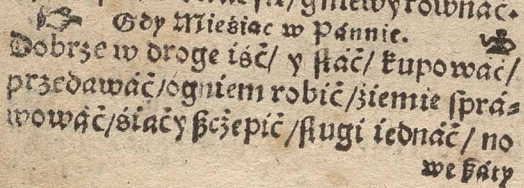 gniewy rownáć.
Gdy Mieśiac w Pánnie.
Dobrze w droge iść/ y słáć/ kupowáć/
przedawáć/ ogniem robić/ źiemie sprá-
wowáć/ śiać y szczepić/ sługi iednáć/ no
we száty